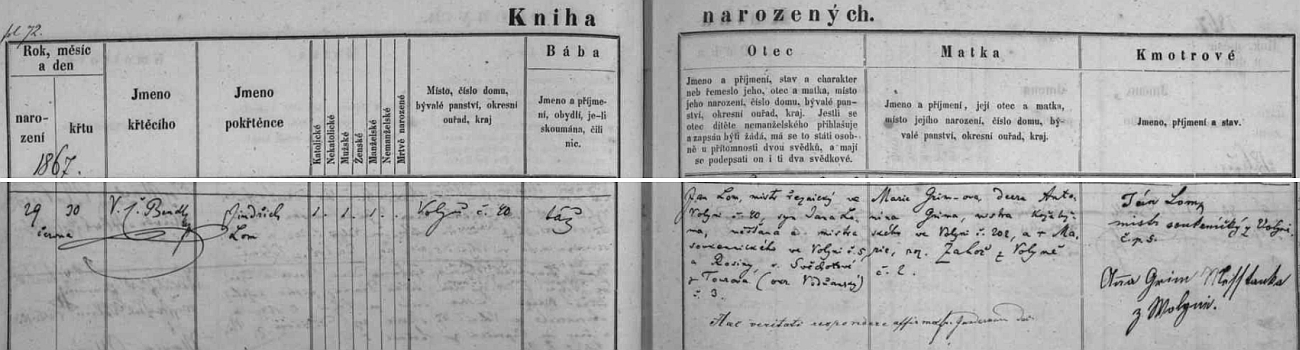 fol 72.
Kniha narozených.
Rok, měsíc
a den
naro-
zení
křtu
1867.
Jmeno
křtěcího
Jmeno
pokřtěnce
Katolické
Nekatolické
Mužské
Ženské
Manželské
Nemanželské
Mrtvě narozené
Místo, číslo domu,
bývalé panství, okresní
ouřad, kraj
Bába
Jmeno a příjme-
ní, obydlí, je-li
zkoumána, čili
nic.
Otec
Jmeno a příjmení, stav a charakter
neb řemeslo jeho, otec a matka, místo
jeho narození, číslo domu, bývalé pan-
ství, okresní ouřad, kraj. Jestli se
otec dítěte nemanželského přihlašuje
a zapsán býti žádá, má se to státi osob-
ně u přítomnosti dvou svědků, a mají
se podepsati on i ti dva svědkové.
Matka
Jmeno a příjmení, její otec a matka,
místo jejího narození, číslo domu, bý-
valé panství, okresní ouřad, kraj.
Kmotrové
Jmeno, příjmení a stav.
29
června
30
V. J. Bendl
Jindřich
Lom
1. 1. 1.
Volyň č. 40
táž
Jan Lom, mistr řeznický ve
Volyni č. 40, syn Jana Lo-
ma, měšťana a mistra
ve Volyni č. 5,
a Rosiny, r.
z (okr. Vodňanský)
č. 3.
Marie Grimova, dcera Anto-
nína Grima, mistra
ve Volyni č. 202, a Ma-
rie, roz. z Volyně
č. 2.
Hac veritati respondere
Ján Lom,
mistr z Volyně,
č. p. 5.
Anna Grim
z Wolynie.